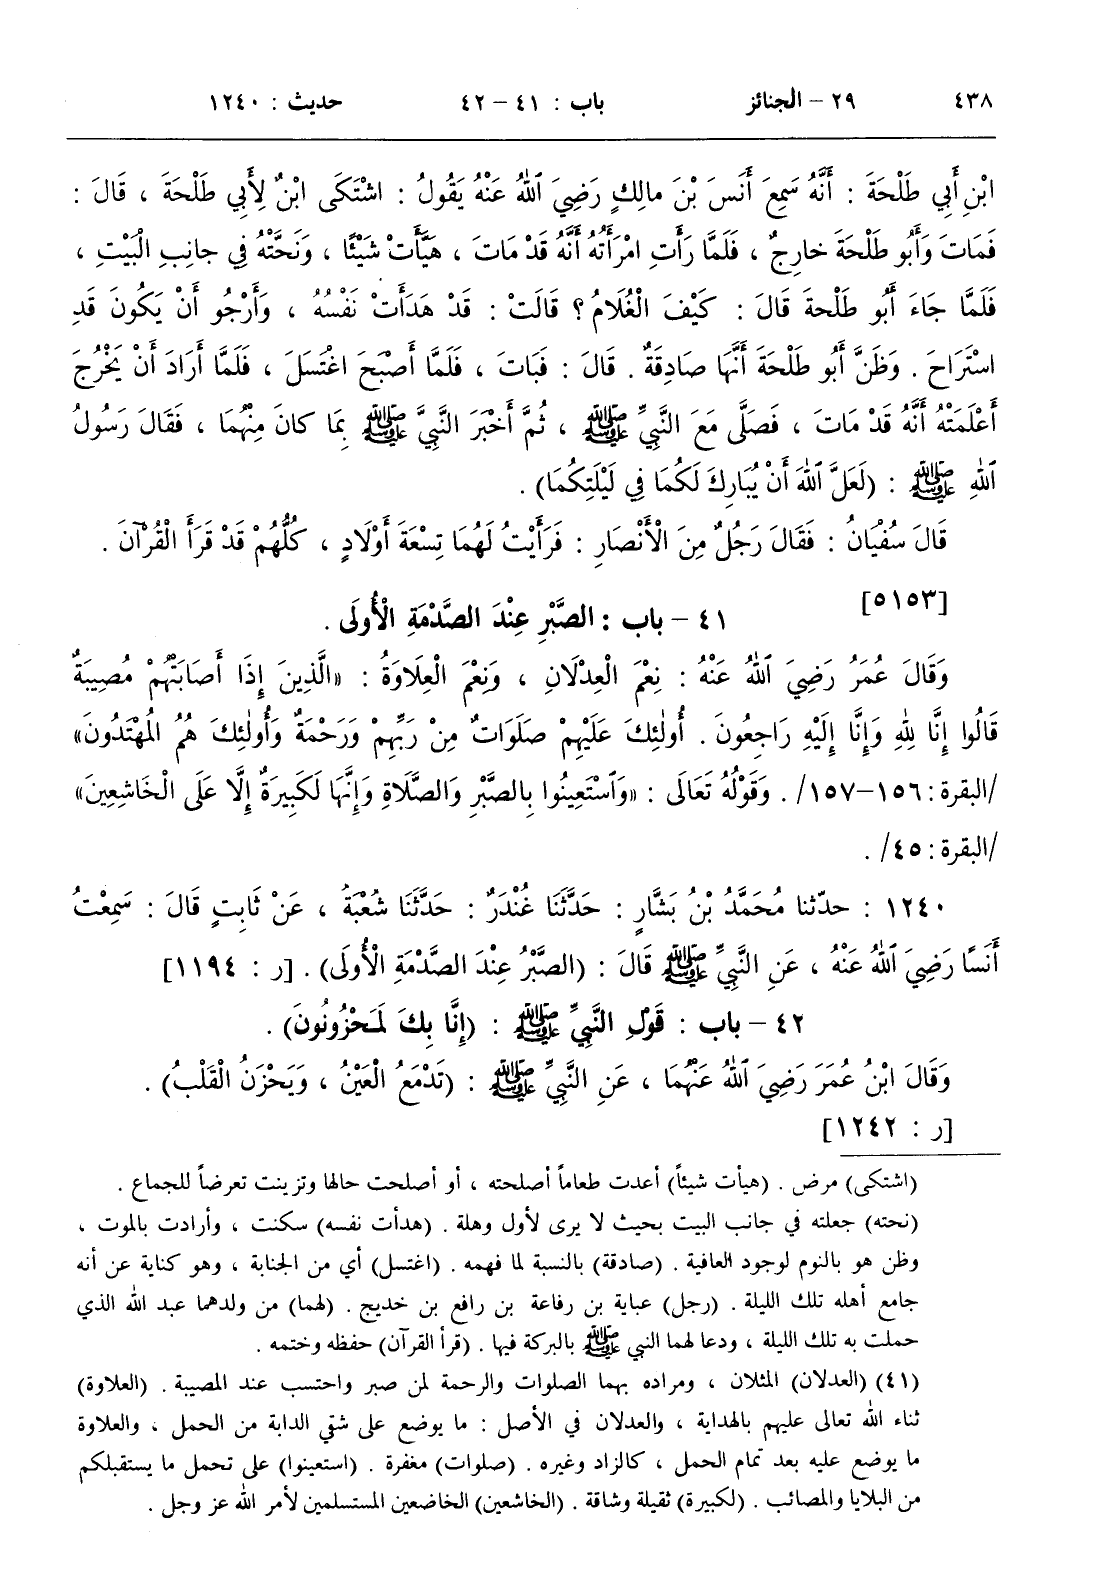 ٤٣٨ ٢٩ – الجنائز باب : ٤١ – ٤٢ حديث : ١٢٤٠
ابْنِ أَبِي طَلْحَةَ : أَنَّهُ سَمِعَ أَنَسَ بْنَ مالِكٍ رَضِيَ ٱللهُ عَنْهُ يَقُولُ : اشْتَكَى ابْنٌ لِأَبِي طَلْحَةَ ، قَالَ :
فَمَاتَ وَأَبُو طَلْحَةَ خارِجٌ ، فَلَمَّا رَأَتِ امْرَأَتُهُ أَنَّهُ قَدْ مَاتَ ، هَيَّأَتْ شَيْئًا ، وَنَحَّتْهُ فِي جانِبِ الْبَيْتِ ،
فَلَمَّا جَاءَ أَبُو طَلْحةَ قَالَ : كَيْفَ الْغُلَامُ ؟ قَالَتْ : قَدْ هَدَأَتْ نَفْسُهُ ، وَأَرْجُو أَنْ يَكُونَ قَدِ
اسْتَرَاحَ . وَظَنَّ أَبُو طَلْحَةَ أَنَّهَا صَادِقَةٌ . قَالَ : فَبَاتَ ، فَلَمَّا أَصْبَحَ اغْتَسَلَ ، فَلَمَّا أَرَادَ أَنْ يَخْرُجَ
أَعْلَمَتْهُ أَنَّهُ قَدْ مَاتَ ، فَصَلَّى مَعَ النَّبِيِّ ﷺ ، ثُمَّ أَخْبَرَ النَّبِيَّ ﷺ بِمَا كانَ مِنْهُمَا ، فَقَالَ رَسُولُ
ٱللهِ ﷺ : (لَعَلَّ ٱللهَ أَنْ يُبَارِكَ لَكُمَا فِي لَيْلَتِكُمَا) .
قَالَ سُفْيَانُ : فَقَالَ رَجُلٌ مِنَ الْأَنْصَارِ : فَرَأَيْتُ لَهُمَا تِسْعَةَ أَوْلَادٍ ، كُلُّهُمْ قَدْ قَرَأَ الْقُرْآنَ .
[٥١٥٣]
٤١ – باب : الصَّبْرِ عِنْدَ الصَّدْمَةِ الْأُولَى .
وَقَالَ عُمَرُ رَضِيَ ٱللهُ عَنْهُ : نِعْمَ الْعِدْلَانِ ، وَنِعْمَ الْعِلَاوَةُ : «الَّذِينَ إِذَا أَصَابَتْهُمْ مُصِيبَةٌ
قَالُوا إِنَّا لِلّٰهِ وَإِنَّا إِلَيْهِ رَاجِعُونَ . أُولٰئِكَ عَلَيْهِمْ صَلَوَاتٌ مِنْ رَبِّهِمْ وَرَحْمَةٌ وَأُولٰئِكَ هُمُ الْمُهْتَدُونَ»
/البقرة : ١٥٦–١٥٧/ . وَقَوْلُهُ تَعَالَى : «وَٱسْتَعِينُوا بِالصَّبْرِ وَالصَّلَاةِ وَإِنَّهَا لَكَبِيرَةٌ إِلَّا عَلَى الْخَاشِعِينَ»
/البقرة : ٤٥/ .
١٢٤٠ : حدّثنا مُحَمَّدُ بْنُ بَشَّارٍ : حَدَّثَنَا غُنْدَرٌ : حَدَّثَنَا شُعْبَةُ ، عَنْ ثَابِتٍ قَالَ : سَمِعْتُ
أَنَسًا رَضِيَ ٱللهُ عَنْهُ ، عَنِ النَّبِيِّ ﷺ قَالَ : (الصَّبْرُ عِنْدَ الصَّدْمَةِ الْأُولَى) . [ر : ١١٩٤]
٤٢ – باب : قَوْلِ النَّبِيِّ ﷺ : (إِنَّا بِكَ لَمَحْزُونُونَ) .
وَقَالَ ابْنُ عُمَرَ رَضِيَ ٱللهُ عَنْهُمَا ، عَنِ النَّبِيِّ ﷺ : (تَدْمَعُ الْعَيْنُ ، وَيَحْزَنُ الْقَلْبُ) .
[ر : ١٢٤٢]
(اشتكى) مرض . (هيأت شيئاً) أعدت طعاماً أصلحته ، أو أصلحت حالها وتزينت تعرضاً للجماع .
(نحته) جعلته في جانب البيت بحيث لا يرى لأول وهلة . (هدأت نفسه) سكنت ، وأرادت بالموت ،
وظن هو بالنوم لوجود العافية . (صادقة) بالنسبة لما فهمه . (اغتسل) أي من الجنابة ، وهو كناية عن أنه
جامع أهله تلك الليلة . (رجل) عباية بن رفاعة بن رافع بن خديج . (لهما) من ولدهما عبد الله الذي
حملت به تلك الليلة ، ودعا لهما النبي ﷺ بالبركة فيها . (قرأ القرآن) حفظه وختمه .
(٤١) (العدلان) المثلان ، ومراده بهما الصلوات والرحمة لمن صبر واحتسب عند المصيبة . (العلاوة)
ثناء الله تعالى عليهم بالهداية ، والعدلان في الأصل : ما يوضع على شقي الدابة من الحمل ، والعلاوة
ما يوضع عليه بعد تمام الحمل ، كالزاد وغيره . (صلوات) مغفرة . (استعينوا) على تحمل ما يستقبلكم
من البلايا والمصائب . (لكبيرة) ثقيلة وشاقة . (الخاشعين) الخاضعين المستسلمين لأمر الله عز وجل .